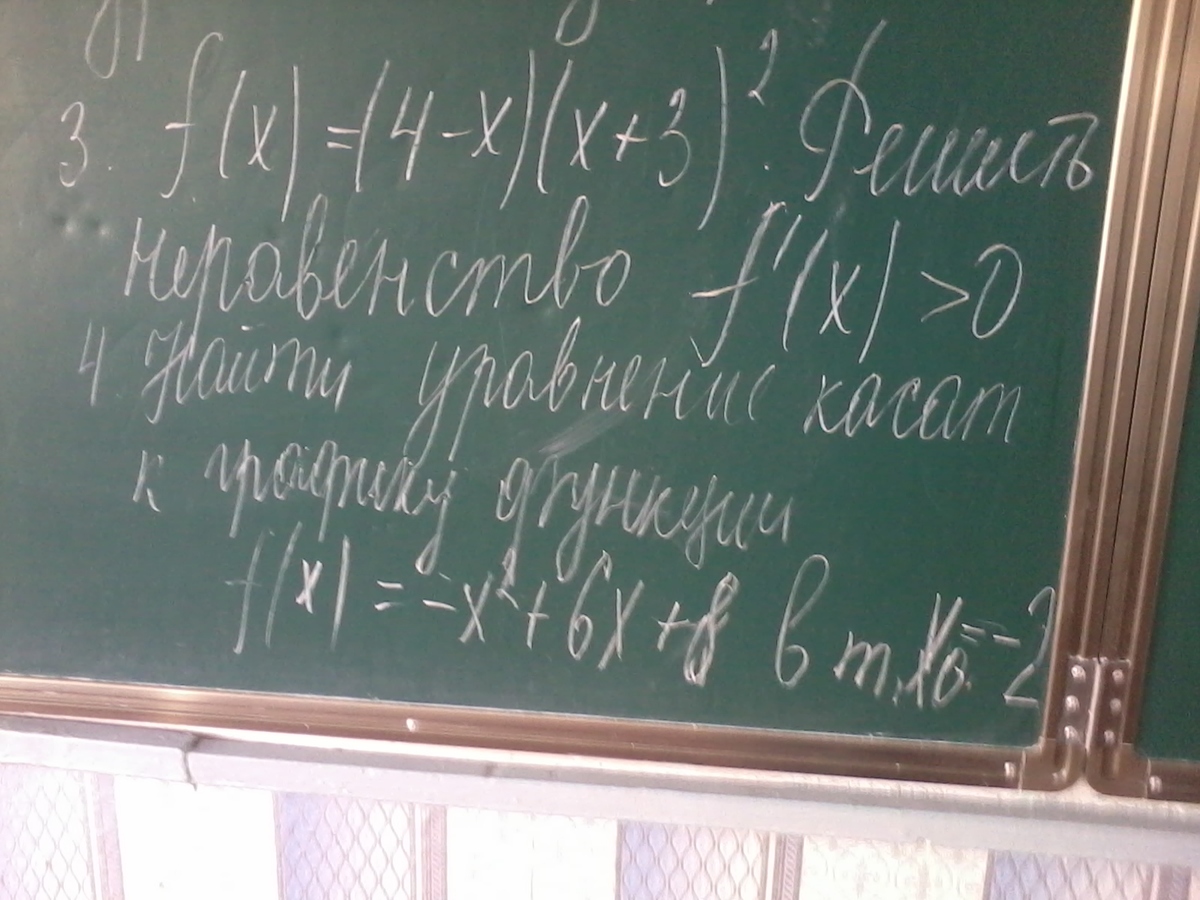 3. f(x) = (4-x)(x+3)². Решить
неравенство f'(x) > 0
4. Найти уравнение касат
к графику функции
f(x) = -x² + 6x + 8 в т. x₀ = -2